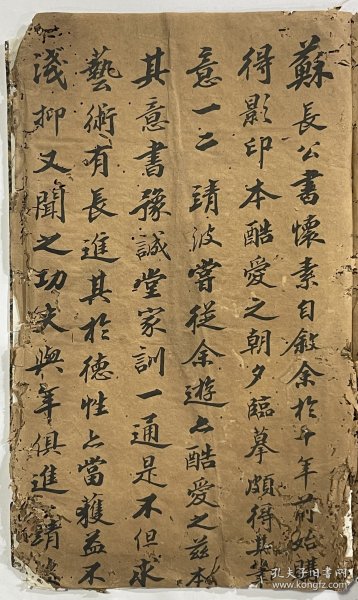 蘇長公書懷素自敘余於十年前始
得影印本酷愛之朝夕臨摹頗得其筆
意一二 靖波嘗從余遊亦酷愛之茲本
其意書豫誠堂家訓一通是不但求
藝術有長進其於德性上當獲益不
淺抑又聞之功夫與年俱進靖波
孔夫子旧书网
www.kongfz.com